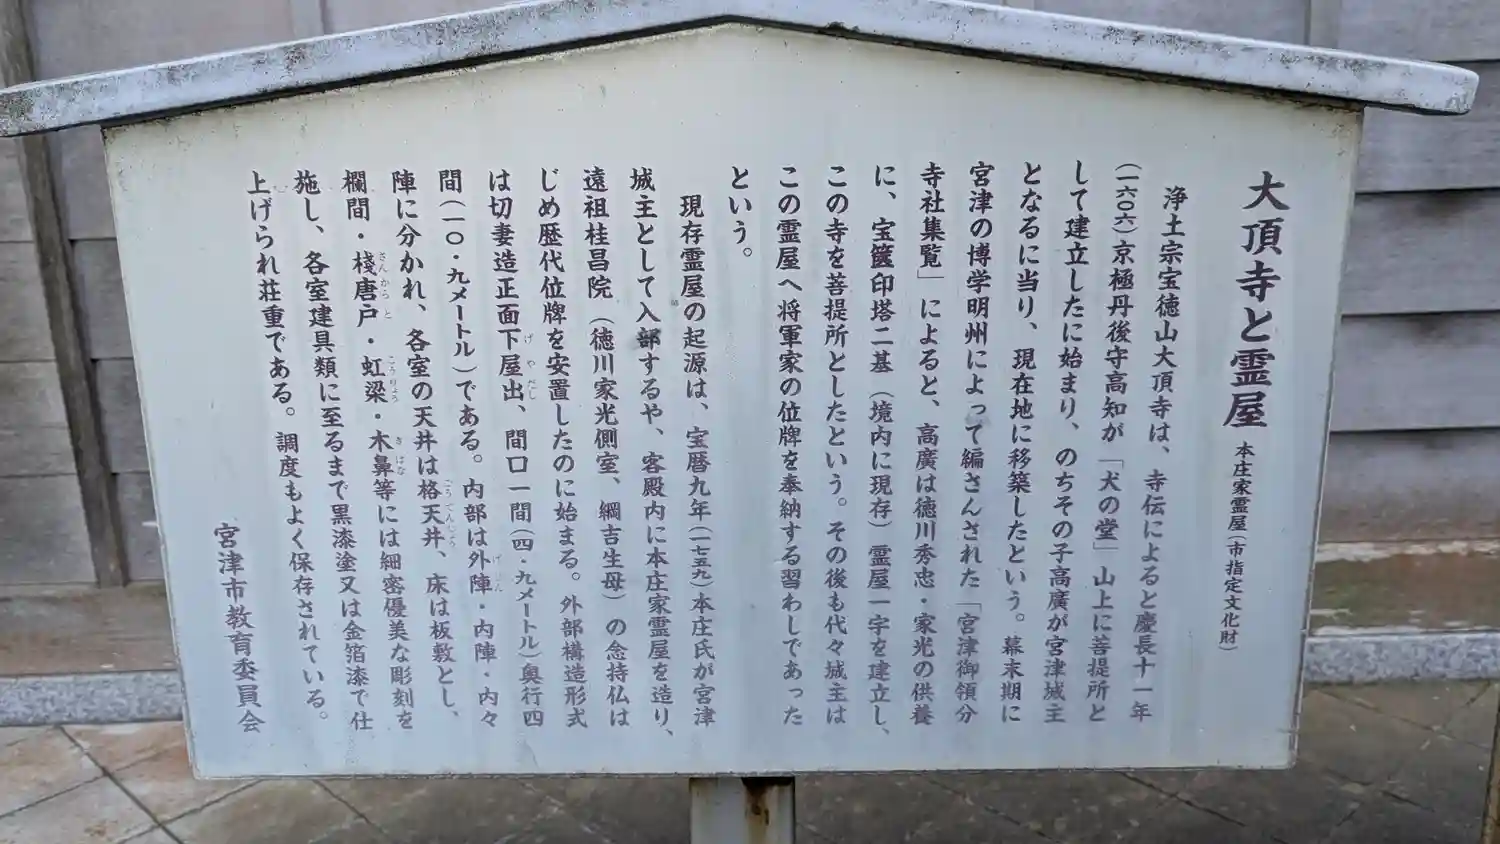 大頂寺と霊屋 本庄家霊屋(市指定文化財)
浄土宗宝徳山大頂寺は、寺伝によると慶長十一年
(一六〇六)京極丹後守高知が「犬の堂」山上に菩提所と
して建立したに始まり、のちその子高廣が宮津城主
となるに当り、現在地に移築したという。幕末期に
宮津の博学明州によって編さんされた「宮津御領分
寺社集覧」によると、高廣は徳川秀忠・家光の供養
に、宝篋印塔二基(境内に現存)霊屋一宇を建立し、
この寺を菩提所としたという。その後も代々城主は
この霊屋へ将軍家の位牌を奉納する習わしであった
という。
現存霊屋の起源は、宝暦九年(一七五九)本庄氏が宮津
城主として入部するや、客殿内に本庄家霊屋を造り、
遠祖桂昌院(徳川家光側室、綱吉生母)の念持仏は
じめ歴代位牌を安置したのに始まる。外部構造形式
は切妻造正面下屋出、間口一間(四・九メートル)奥行四
間(一〇・九メートル)である。内部は外陣・内陣・内々
陣に分かれ、各室の天井は格天井、床は板敷とし、
欄間・棧唐戸・虹梁・木鼻等には細密優美な彫刻を
施し、各室建具類に至るまで黒漆塗又は金箔漆で仕
上げられ荘重である。調度もよく保存されている。
宮津市教育委員会